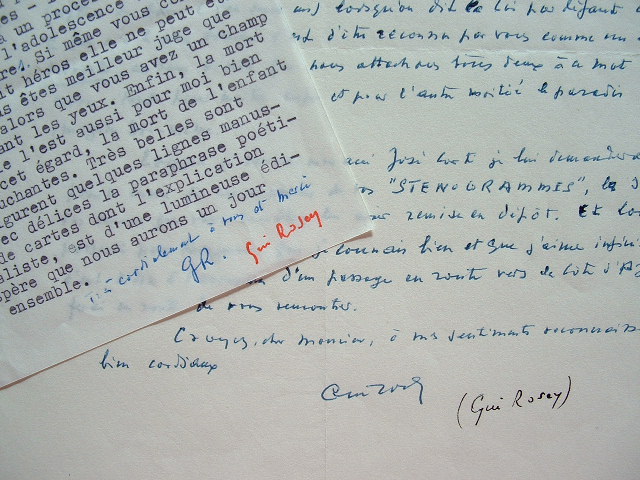 un proce
l'adolescence
res. Si même vous con
it héros elle ne peut êt
us êtes meilleur juge que
alors que vous avez un champ
ant les yeux. Enfin, la mort
e l'est aussi pour moi bien
cet égard, la mort de l'enfant
uchantes. Très belles sont
igurent quelques lignes manus-
ec délices la paraphrase poéti-
de cartes dont l'explication
aliste, est d'une lumineuse édi-
père que nous aurons un jour
ensemble.
cordialement à vous et merci
GR. Gui Rosey
lorsqu'on dit de lui par défaut
d'être reconnu par vous comme un
nous attachons tous deux à ce mot
et pour l'autre moitié le paradis
José Corti je lui demanderai
"STENOGRAMMES", la
remise en dépôt. Et
je connais bien et que j'aime infini
d'un passage en route vers la Côte d'Az
de vous rencontrer.
Croyez, cher monsieur, à mes sentiments reconnaiss
bien cordiaux
(Gui Rosey)